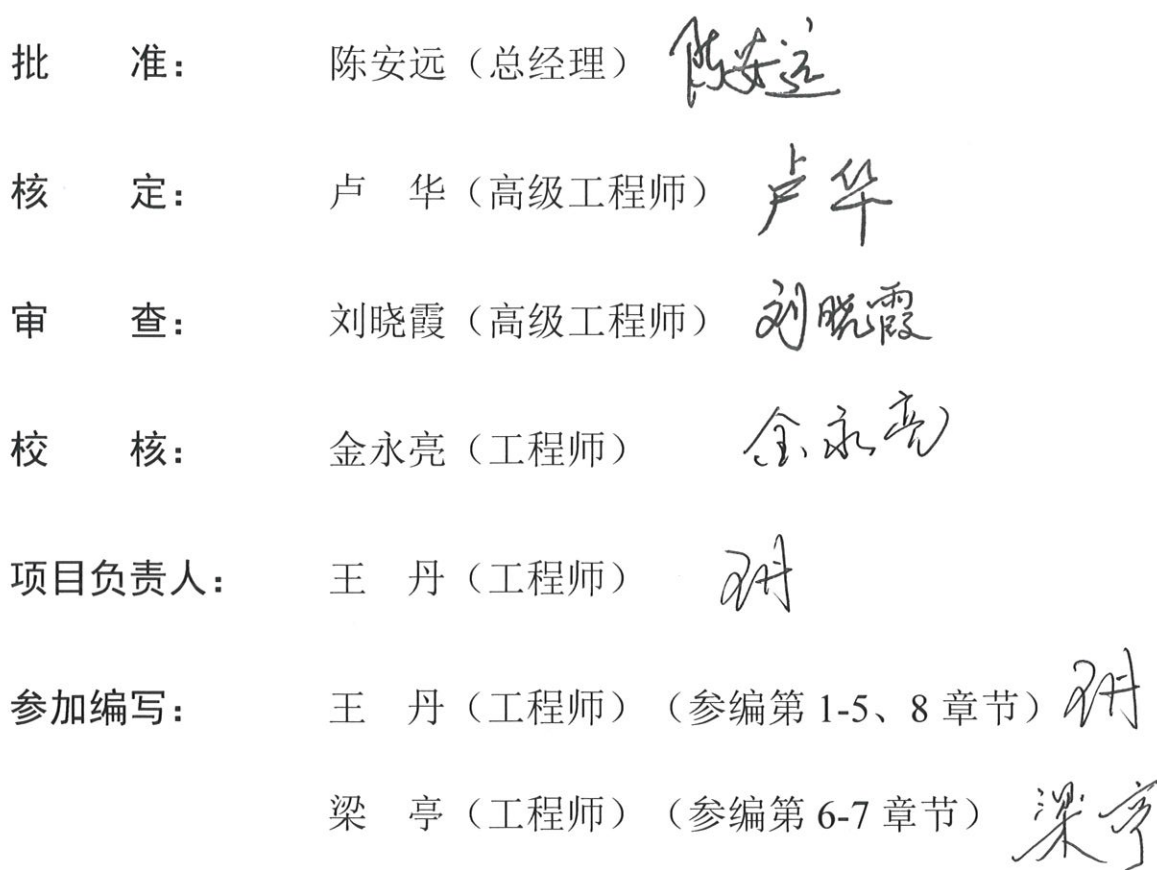 批　　准：　陈安远（总经理）　陈安远
核　　定：　卢　华（高级工程师）　卢华
审　　查：　刘晓霞（高级工程师）　刘晓霞
校　　核：　金永亮（工程师）　金永亮
项目负责人：　王　丹（工程师）　王丹
参加编写：　王　丹（工程师）（参编第 1-5、8 章节）王丹
梁　亭（工程师）（参编第 6-7 章节）　梁亭